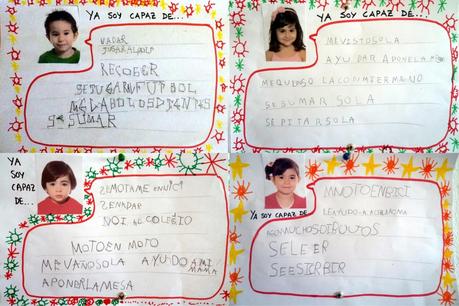 YA SOY CAPAZ DE...
NADAR
JUGAR AL
RECOGER
SE JUGAR FUTBOL
ME LABO LOS DIENTES
SE SUMAR
YA SOY CAPAZ DE...
ME VISTO SOLA
AYUDAR APONELA
ME QUEDO LA CON MI ERMENO
SE SUMAR SOLA
SE PITAR SOLA
YA SOY CAPAZ DE...
SE MOTAME EN VICI
SE NADAR
NOI AL COLEGIO
MOTO EN MOTO
ME VAÑO SOLA AYUDO A MI MAMA
APONER LA MESA
YA SOY CAPAZ DE...
MNOTO EN BICI
LE AYUDO A
MUCHOS DIBUJOS
SE LEER
SE ESCRIBIR